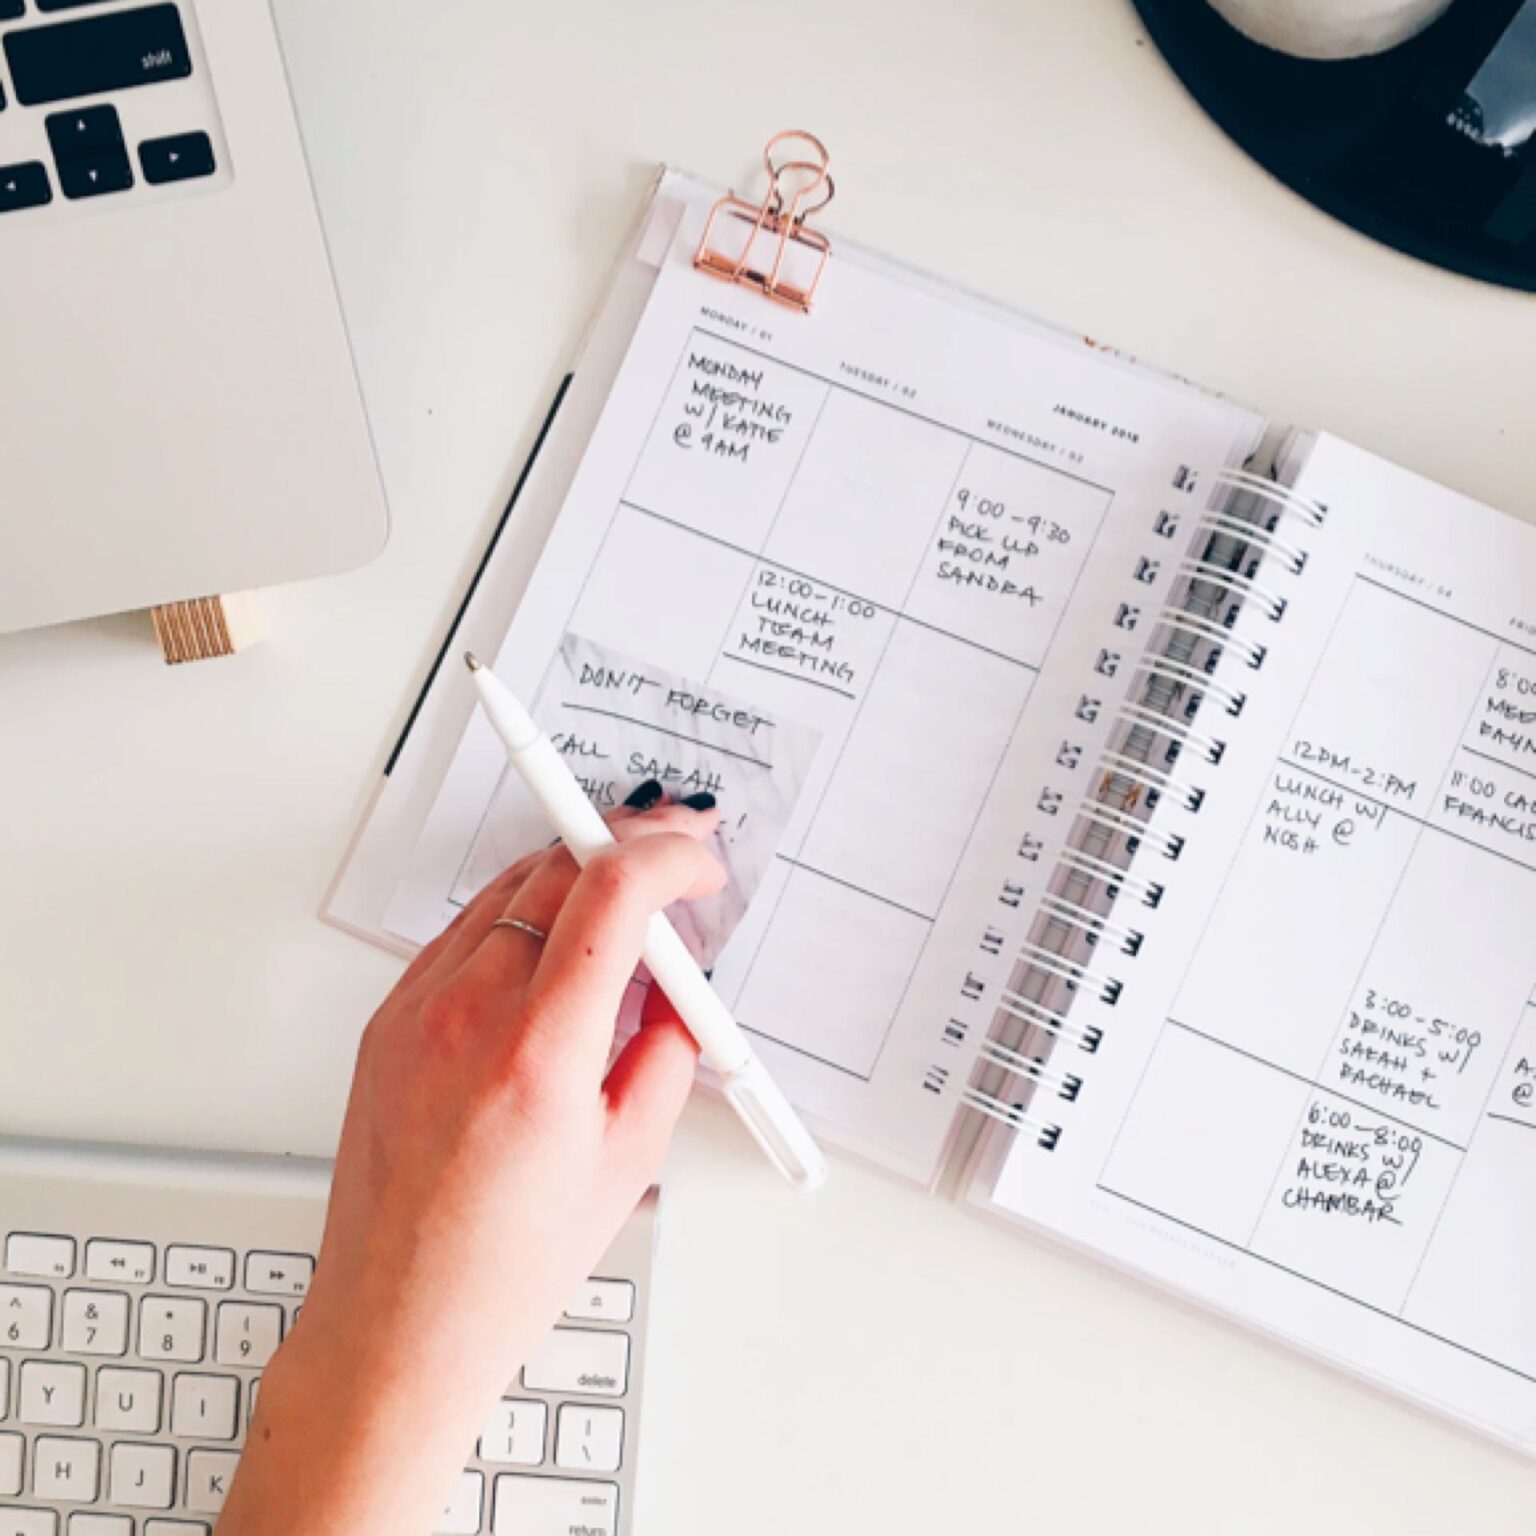 shift
MONDAY / 01
TUESDAY / 02
JANUARY 2018
WEDNESDAY / 03
MONDAY
MEETING
W/ KATIE
@ 9AM
9:00-9:30
PICK UP
FROM
SANDRA
12:00-1:00
LUNCH
TEAM
MEETING
DON'T FORGET
CALL SARAH
THIS
!
THURSDAY / 04
12PM-2:PM
LUNCH W/
ALLY @
NOSH
8:00
MEE
11:00
FRANCIS
3:00-5:00
DRINKS W/
SARAH +
RACHAEL
6:00-8:00
DRINKS W/
ALEXA @
CHAMBAR
@
^ & * (
6 7 8 9
delete
Y U I
} |
] \
H J K
enter
return